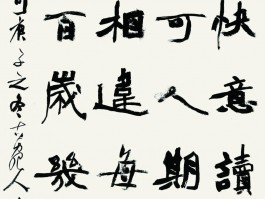 快意讀
可人期
相違每
百歲幾
庚子之冬